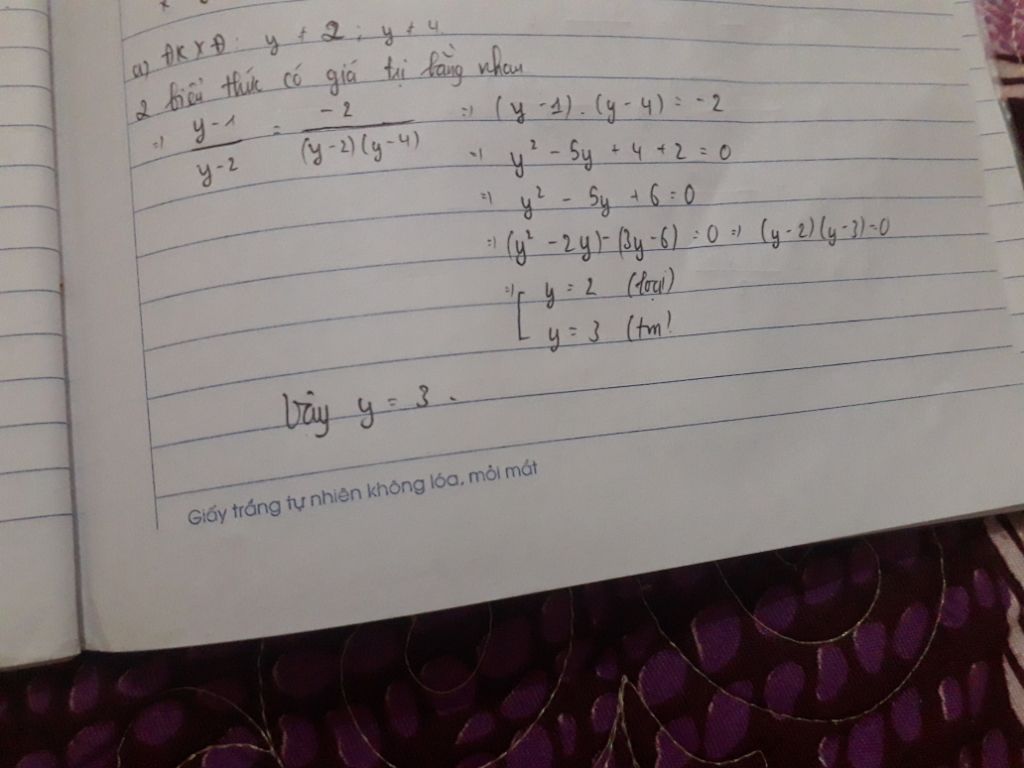 a) ĐKXĐ: y ≠ 2; y ≠ 4
2 biểu thức có giá trị bằng nhau
=> y-1/y-2 = -2/(y-2)(y-4) => (y-1).(y-4) = -2
=> y² - 5y + 4 + 2 = 0
=> y² - 5y + 6 = 0
=> (y² - 2y) - (3y-6) = 0 => (y-2)(y-3)=0
=> [ y = 2 (loại)
y = 3 (tm)
Vậy y = 3.
Giấy trắng tự nhiên không lóa, mỏi mắt